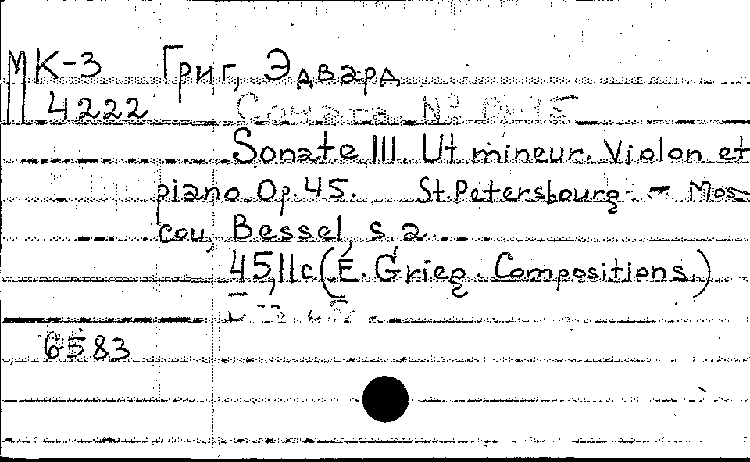 МК-3 Григ, Эдвард
4222 Соната №
Sonate III. Ut mineur. Violon et
piano. Op. 45. St. Petersbourg - Mos-
cou, Bessel, s. a.
45,11с (É. Grieg. Compositions.)
6583